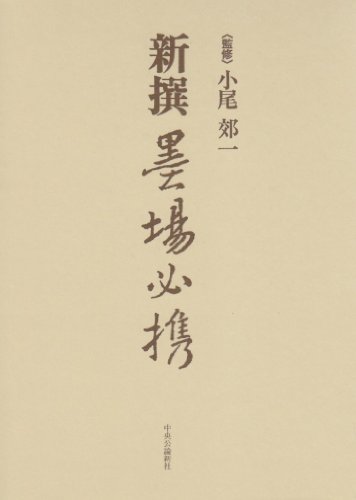 〈監修〉小尾郊一
新撰 墨場必携
中央公論新社